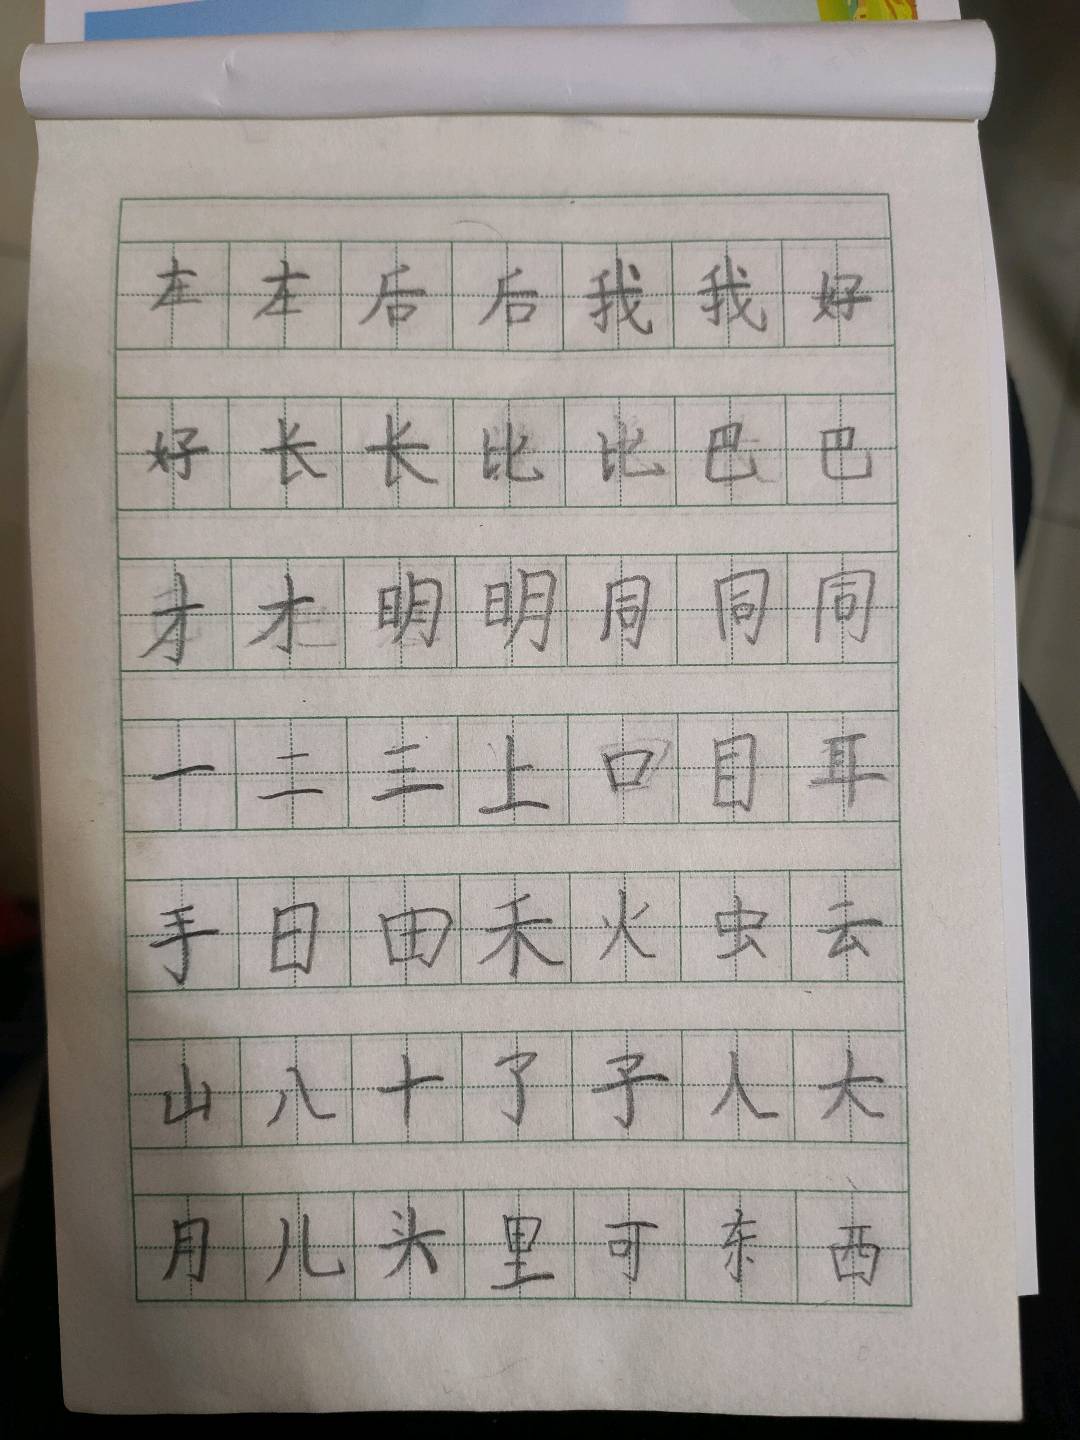 左左后后我我好
好长长比比巴巴
才才明明同同同
一二三上口目耳
手日田禾火虫云
山八十了子人大
月儿头里可东西